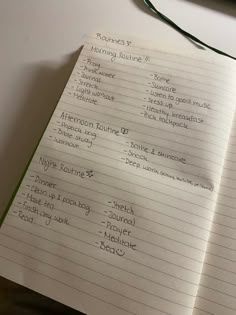 Routines ♡
Morning Routine ☆
- Pray
- Drink water
- Journal
- Stretch
- Light workout
- Meditate
- Bathe
- Skincare
- Listen to good music
- Dress up
- Healthy breakfast
- Pick backpack
Afternoon Routine
- Unpack bag
- Bible study
- Workout
- Bathe & skincare
- Snack
- Deep work
Night Routine ☆
- Dinner
- Clean up & pack bag
- Have tea
- Finish any work
- Read
- Stretch
- Journal
- Prayer
- Meditate
- Bed ☺